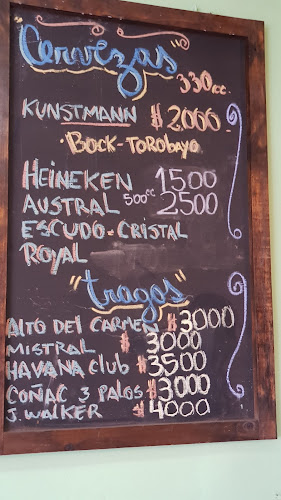 "Cervezas"
330cc
KUNSTMANN $2.000
· BOCK - TOROBAYO
HEINEKEN 1500
AUSTRAL 500cc 2500
ESCUDO - CRISTAL
ROYAL
"tragos"
ALTO DEL CARMEN $3000
MISTRAL $3000
HAVANA Club $3500
COÑAC 3 PALOS $3000
J. WALKER $4000